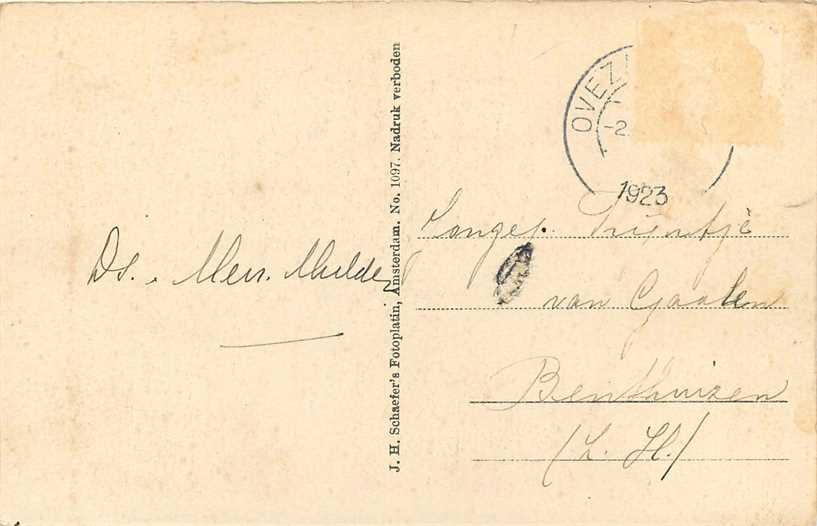 Ds. Men. Mulder
J. H. Schaefer's Fotoplatin, Amsterdam. No. 1097. Nadruk verboden
OVEZ
-2
1923
Trientje
van Gaalen
Benthuizen
(Z. H.)